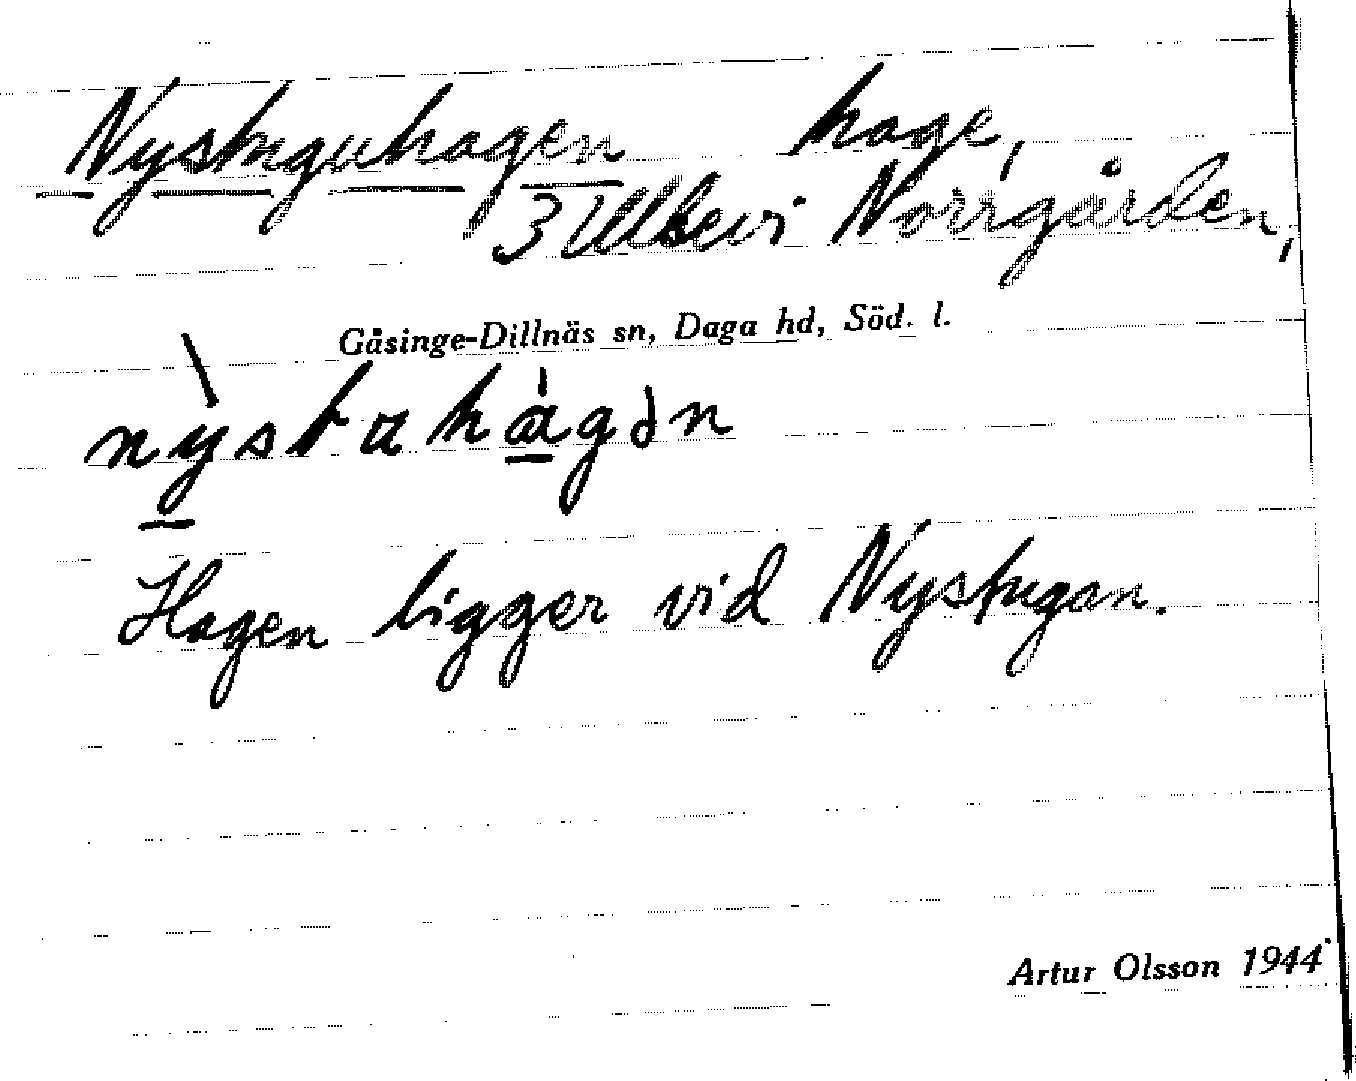 Nystuguhagen hage,
3 Ullsevi Norrgården,
Gåsinge-Dillnäs sn, Daga hd, Söd. l.
nỳstahàgən
Hagen ligger vid Nystugan.
Artur Olsson 1944